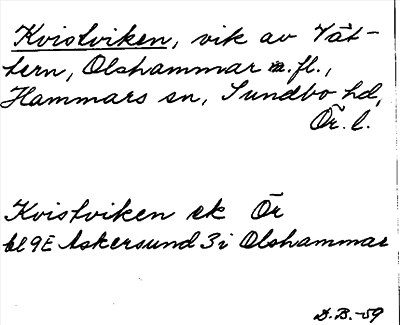 Kvistviken, vik av Vät-
tern, Olshammar m.fl.,
Hammars sn, Sundbo hd,
Ör. l.
Kvistviken ek Ör
bl 9E Askersund 3i Olshammar
D.B.-59